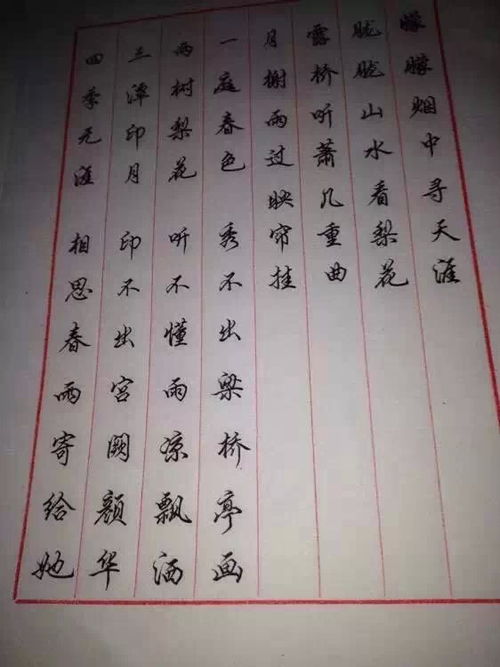 朦朦烟中寻天涯
胧胧山水看梨花
雾桥听萧几重曲
月榭雨过映帘挂
一庭春色 秀不出梁桥亭画
两树梨花 听不懂雨凉飘洒
三潭印月 印不出宫阙颜华
四季无涯 相思春雨寄给她